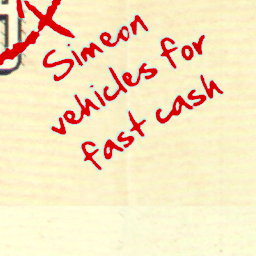 Simeon
vehicles for
fast cash